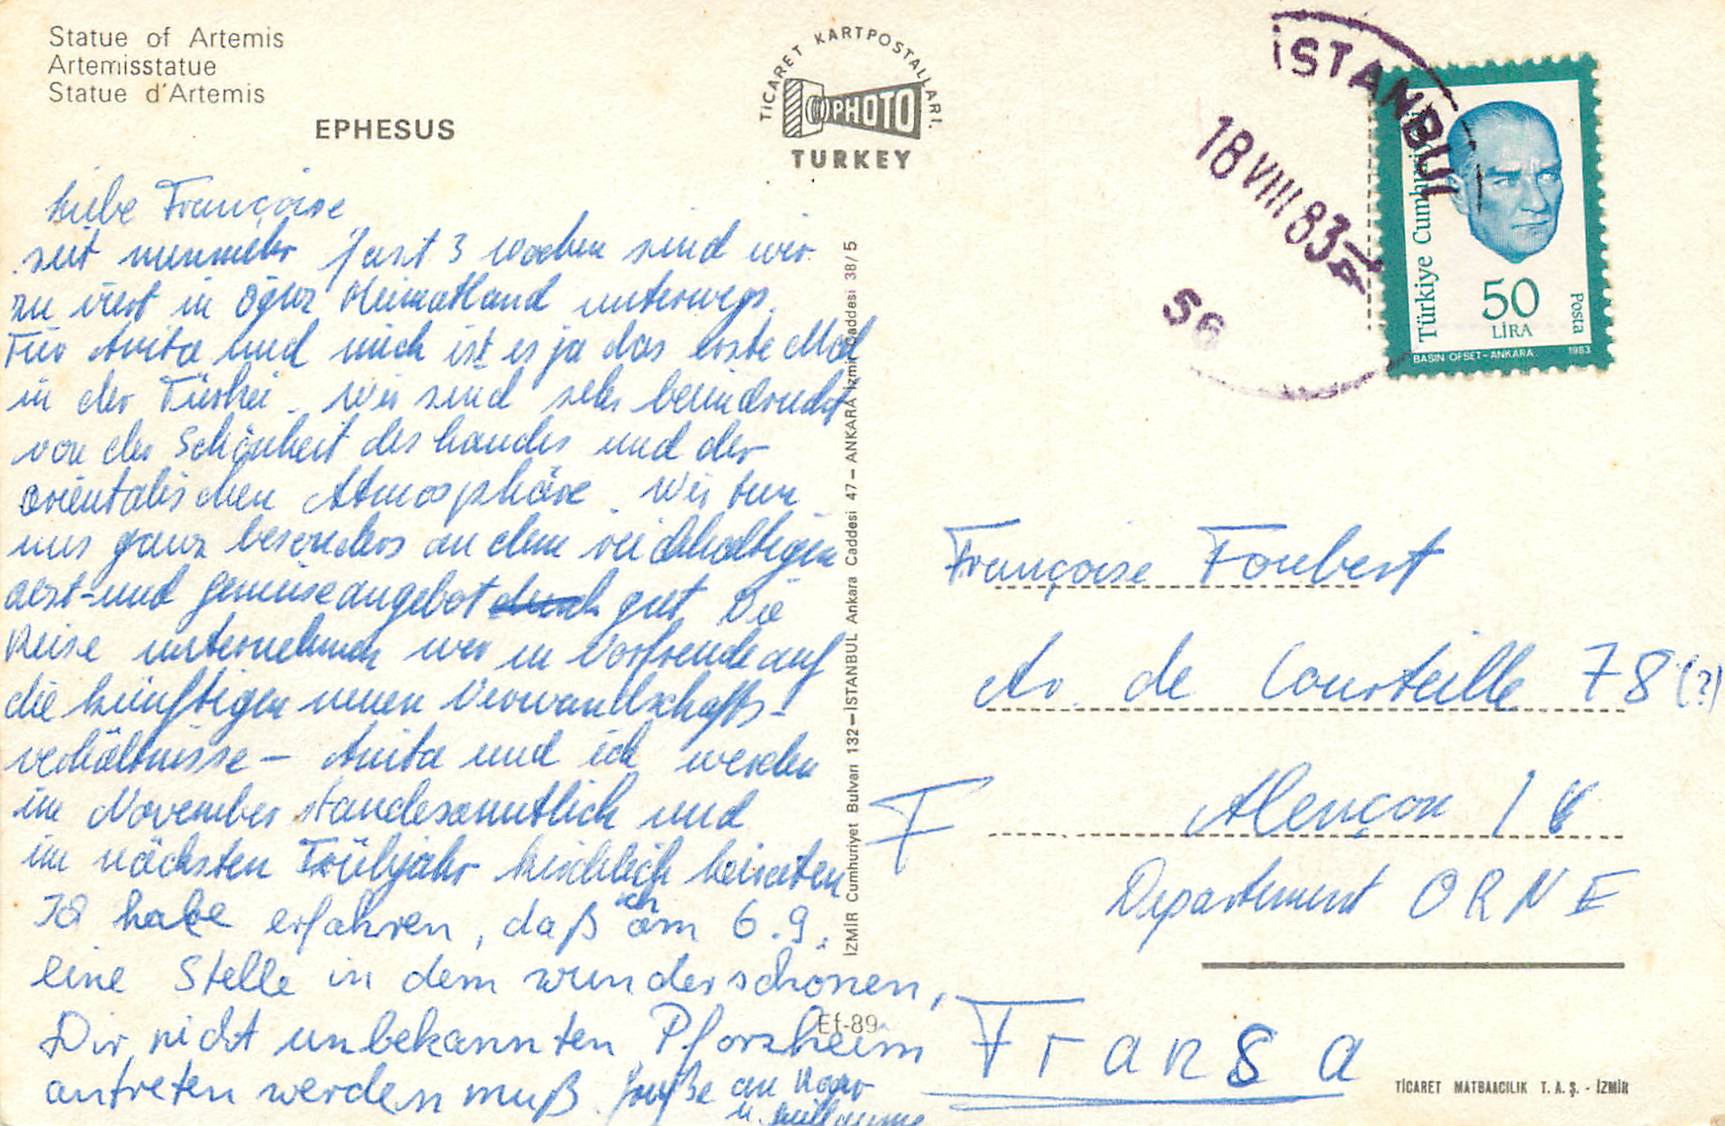 Statue of Artemis
Artemisstatue
Statue d'Artemis
EPHESUS
TİCARET KARTPOSTALLARI.
PHOTO
TURKEY
İSTANBUL
18 VIII 83
56
Türkiye Cumhuriyeti
50
LİRA
Posta
BASIN OFSET-ANKARA 1983
Liebe Françoise
seit nunmehr fast 3 Wochen sind wir
zu viert in Oğuz Heimatland unterwegs.
Für Anita und mich ist es ja das erste Mal
in der Türkei. Wir sind sehr beeindruckt
von der Schönheit des Landes und der
orientalischen Atmosphäre. Wir tun
uns ganz besonders an dem reichhaltigen
Obst- und Gemüseangebot gut Die
Reise unternehmen wir in Vorfreude auf
die künftigen neuen Verwandtschafts-
verhältnisse – Anita und ich werden
im November standesamtlich und
im nächsten Frühjahr kirchlich heiraten
Ich habe erfahren, daß ich am 6.9.
eine Stelle in dem wunderschönen,
Dir nicht unbekannten Pforzheim
antreten werden muß. Grüße an Roger
u. Guillaume
İZMİR Cumhuriyet Bulvarı 132-İSTANBUL Ankara Caddesi 47-ANKARA İzmir Caddesi 38/5
Ef-89
Françoise Foubert
Av. de Courteille 78 (?)
F Alençon 16
Departement ORNE
Fransa
TİCARET MATBAACILIK T.A.Ş. - İZMİR